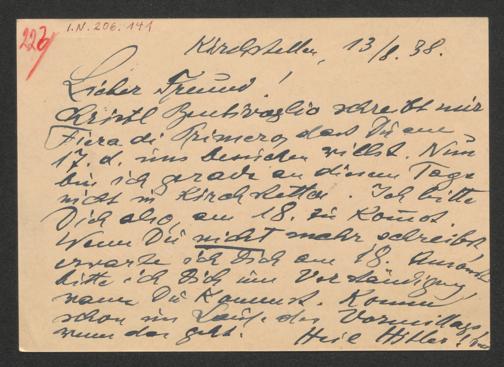 223
I.N. 206.141
Kirchstetten, 13/8. 38.
Lieber Freund!
Kristl Bentivoglio schreibt mir
Fiera di Primero, dass Du am
17. d. uns besuchen willst. Nun
bin ich gerade an diesem Tage
nicht in Kirchstetten. Ich bitte
Dich also, am 18. zu kommen.
Wenn Du nicht mehr schreibst,
erwarte ich Dich am 18. Ansonst
bitte ich Dich um Verständigung,
wann Du kommst. Komm
schon im Laufe des Vormittags,
wenn das geht. Heil Hitler!